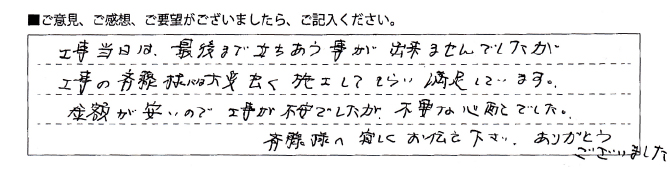 ■ご意見、ご感想、ご要望がございましたら、ご記入ください。
工事当日は、最後まで立ちあう事が出来ませんでしたが
工事の斉藤様には大変良く施工してもらい満足しています。
金額が安いので工事が不安でしたが、不要な心配でした。
斉藤様へ宜しくお伝え下さい。ありがとう
ございました